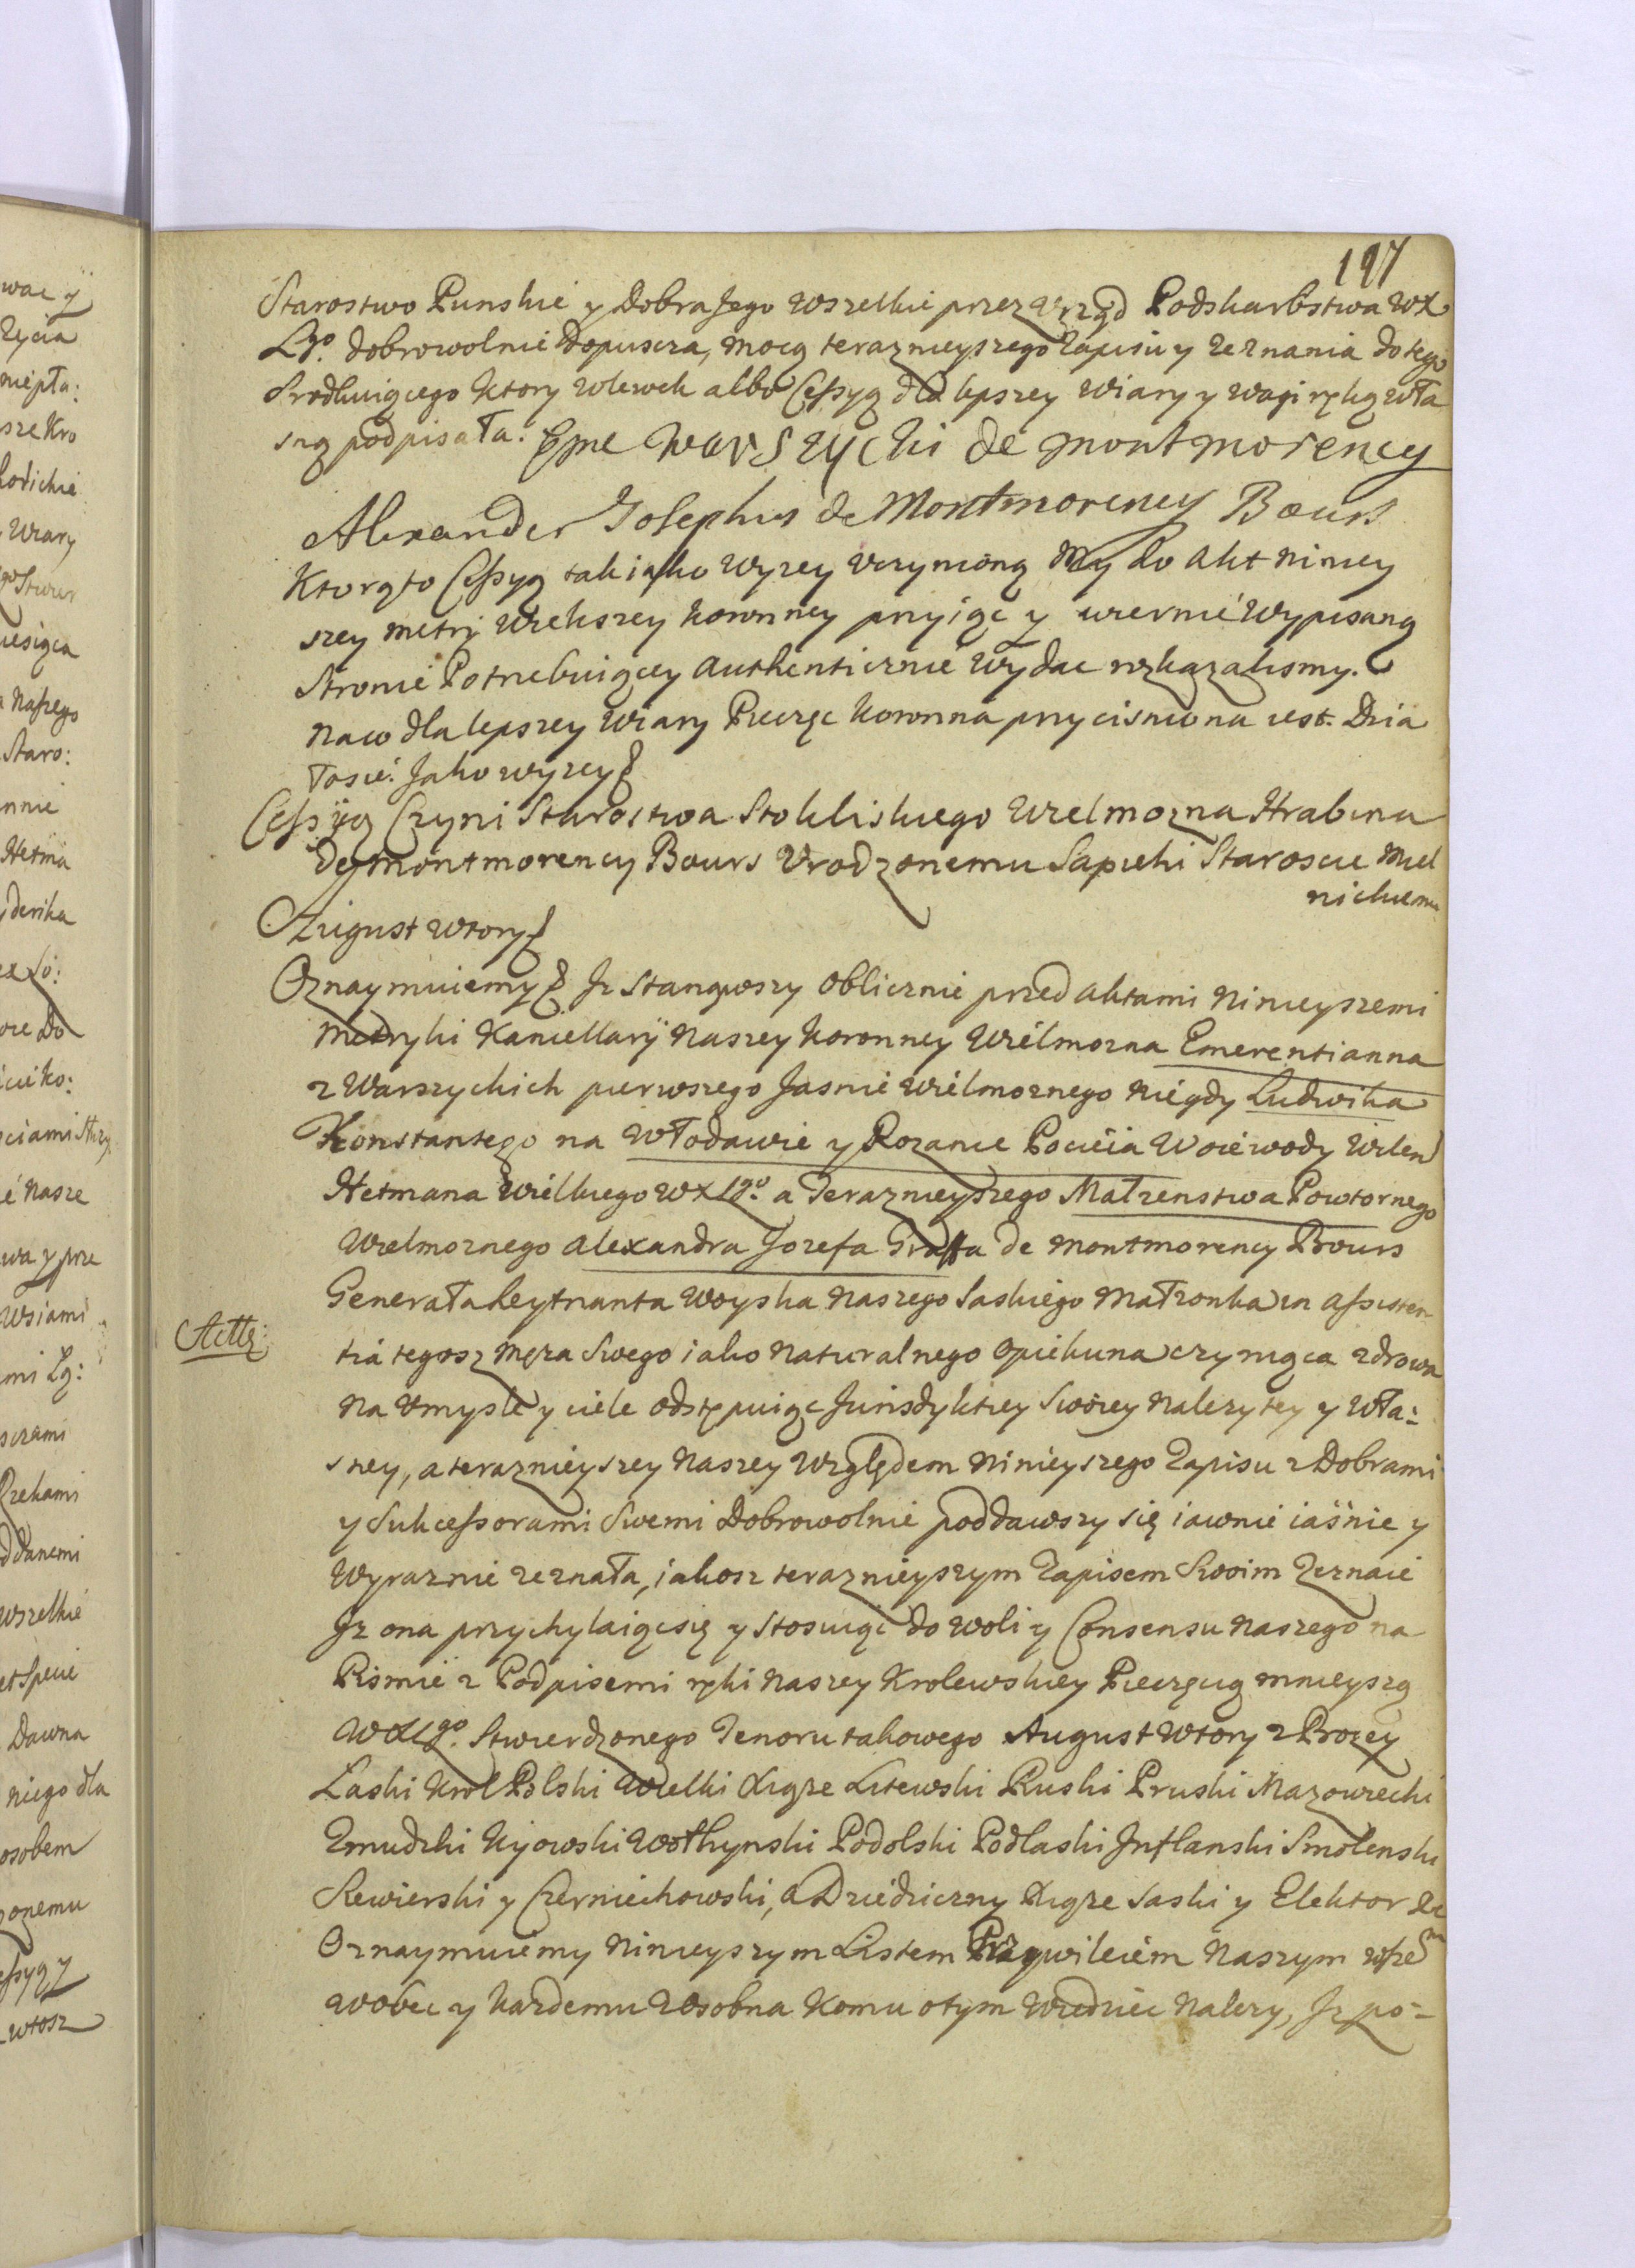 197
Starostwo Punskie y Dobra Jego Wszelkie przez Vrząd Podskarbstwa WX
Lgo. dobrowolnie dopuscza, mocą teraznieyszego Zapisu y Zeznania do tego
Srodkuiącego Ktory wlewek albo Cessyą dla lepszey Wiary y wagi ręką wła
sną podpisała. Eme Warszycki de montmorency
Alexander Josephus de Montmorency Bours
Ktorąto Cessyą tak iako Wyzey Vczynioną My do Akt Niniey
szey Metrÿ Wiekszey Koronney przyiąc y wiernie Wypisaną
Stronie Potrzebuiącey Authenticznie Wydac rozkazalismy.
Na co dla lepszey Wiary Pieczęc Koronna przycisniona iest. Dzia
łosie. Jako wyzey
Cessÿą Czyni Starostwa Stokliskiego Wielmozna Hrabina
De Montmorency Bours Vrodzonemu Sapiehi Staroscie Miel
nickiemu
August Wtory
Oznaymuiemy Jz Stanąwszy Oblicznie przed Aktami Ninieyszemi
Metryki Kancellarÿ Naszey Koronney Wielmozna Emerentianna
z Warszyckich pierwszego Jasnie Wielmoznego Niegdy Ludwika
Konstantego na Włodawie y Rozance Pocieia Woiewody Wilen
Hetmana Wielkiego WXLgo. a Teraznieyszego Małzenstwa Powtornego
Wielmoznego Alexandra Jozefa Graffa de Montmorency Bours
Generała Leytnanta Woyska Naszego Saskiego Małzonka in Assisten
Actą:
tia tegosz Męza Swego iako Naturalnego Opiekuna czyniąca zdrowa
Na Vmysle y ciele odstępuiąc Jurisdyktiey Swoiey Nalezytey y Wła:
sney, a teraznieyszey Naszey Względem Ninieyszego Zapisu z Dobrami
y Sukcessorami Swemi Dobrowolnie poddawszy się iawnie iaśnie y
Wyraznie zeznała, iakosz teraznieyszym Zapisem Swoim Zeznaie
Jz ona przychylaiąc się y Stosuiąc do Woli y Consensu Naszego na
Pismie z Podpisemi ręki Naszey Krolewskiey Pieczęcią mnieyszą
WXLgo. Stwierdzonego Tenoru takowego August Wtory z Bozey
Łaski Krol Polski Wielki Xiąze Litewski Ruski Pruski Mazowiecki
Zmudzki Kijowski Wołhynski Podolski Podlaski Jnflanski Smolenski
Siewierski y Czerniechowski, a Dziedziczny Xiąze Saski y Elektor &c
Oznaymuiemy Ninieyszym Listem Przywileiem Naszym wszem
wobec y kazdemu Zosobna Komu otym Wiedziec Nalezy, Jz po=